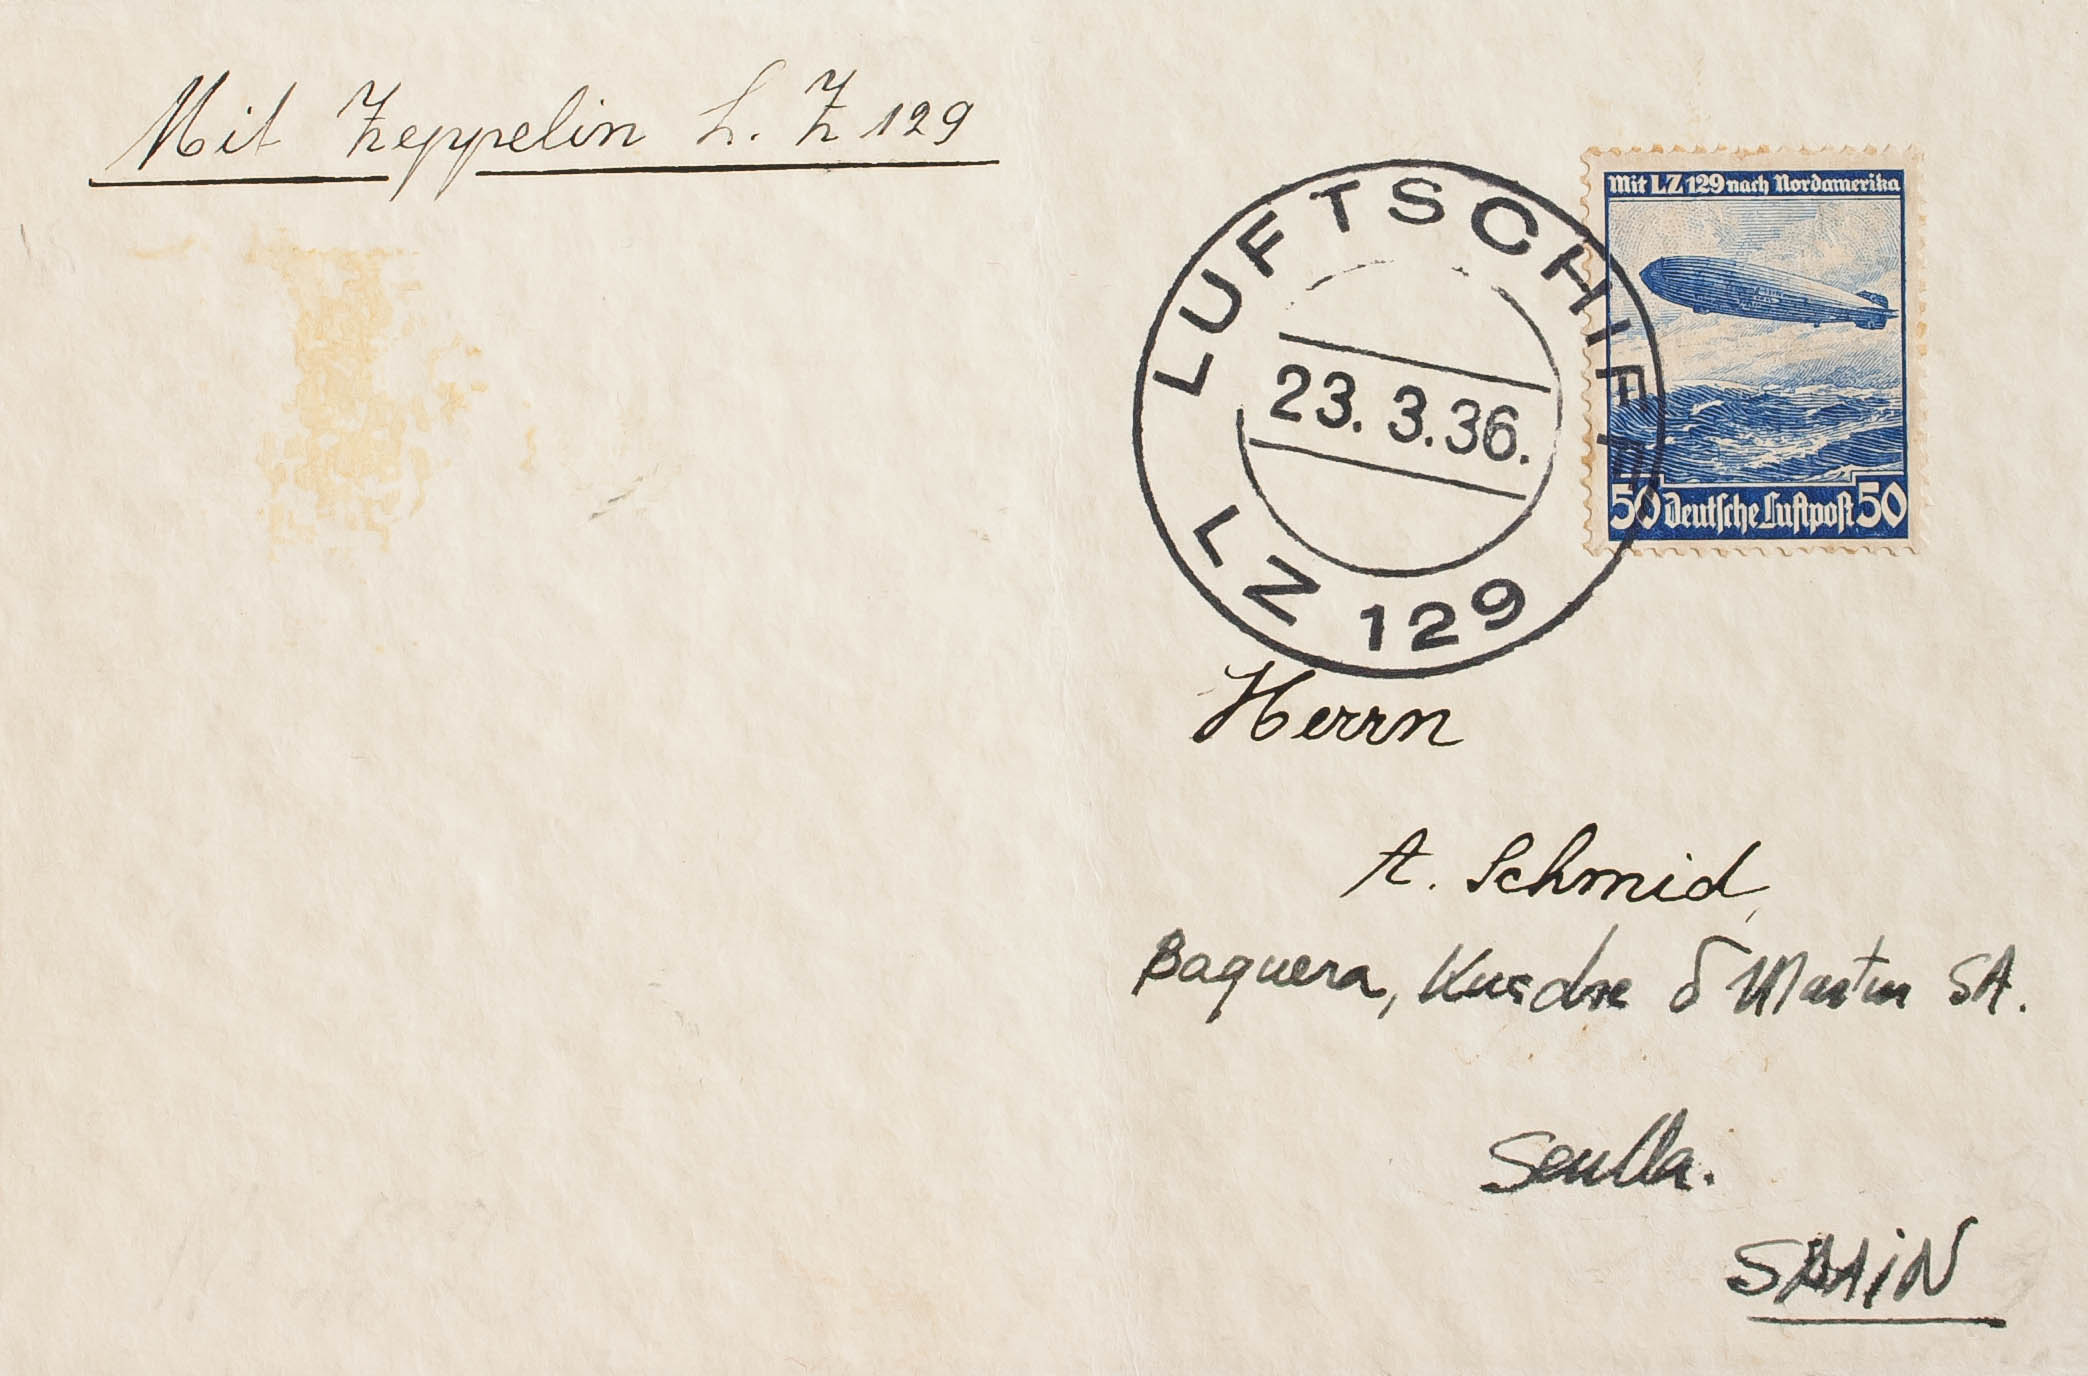 Mit Zeppelin L. Z 129
Mit LZ 129 nach Nordamerika
LUFTSCHIFF
23. 3. 36.
LZ 129
50 Deutsche Luftpost 50
Herrn
A. Schmid,
Baquera, Kusche & Martin SA.
Sevilla.
SPAIN